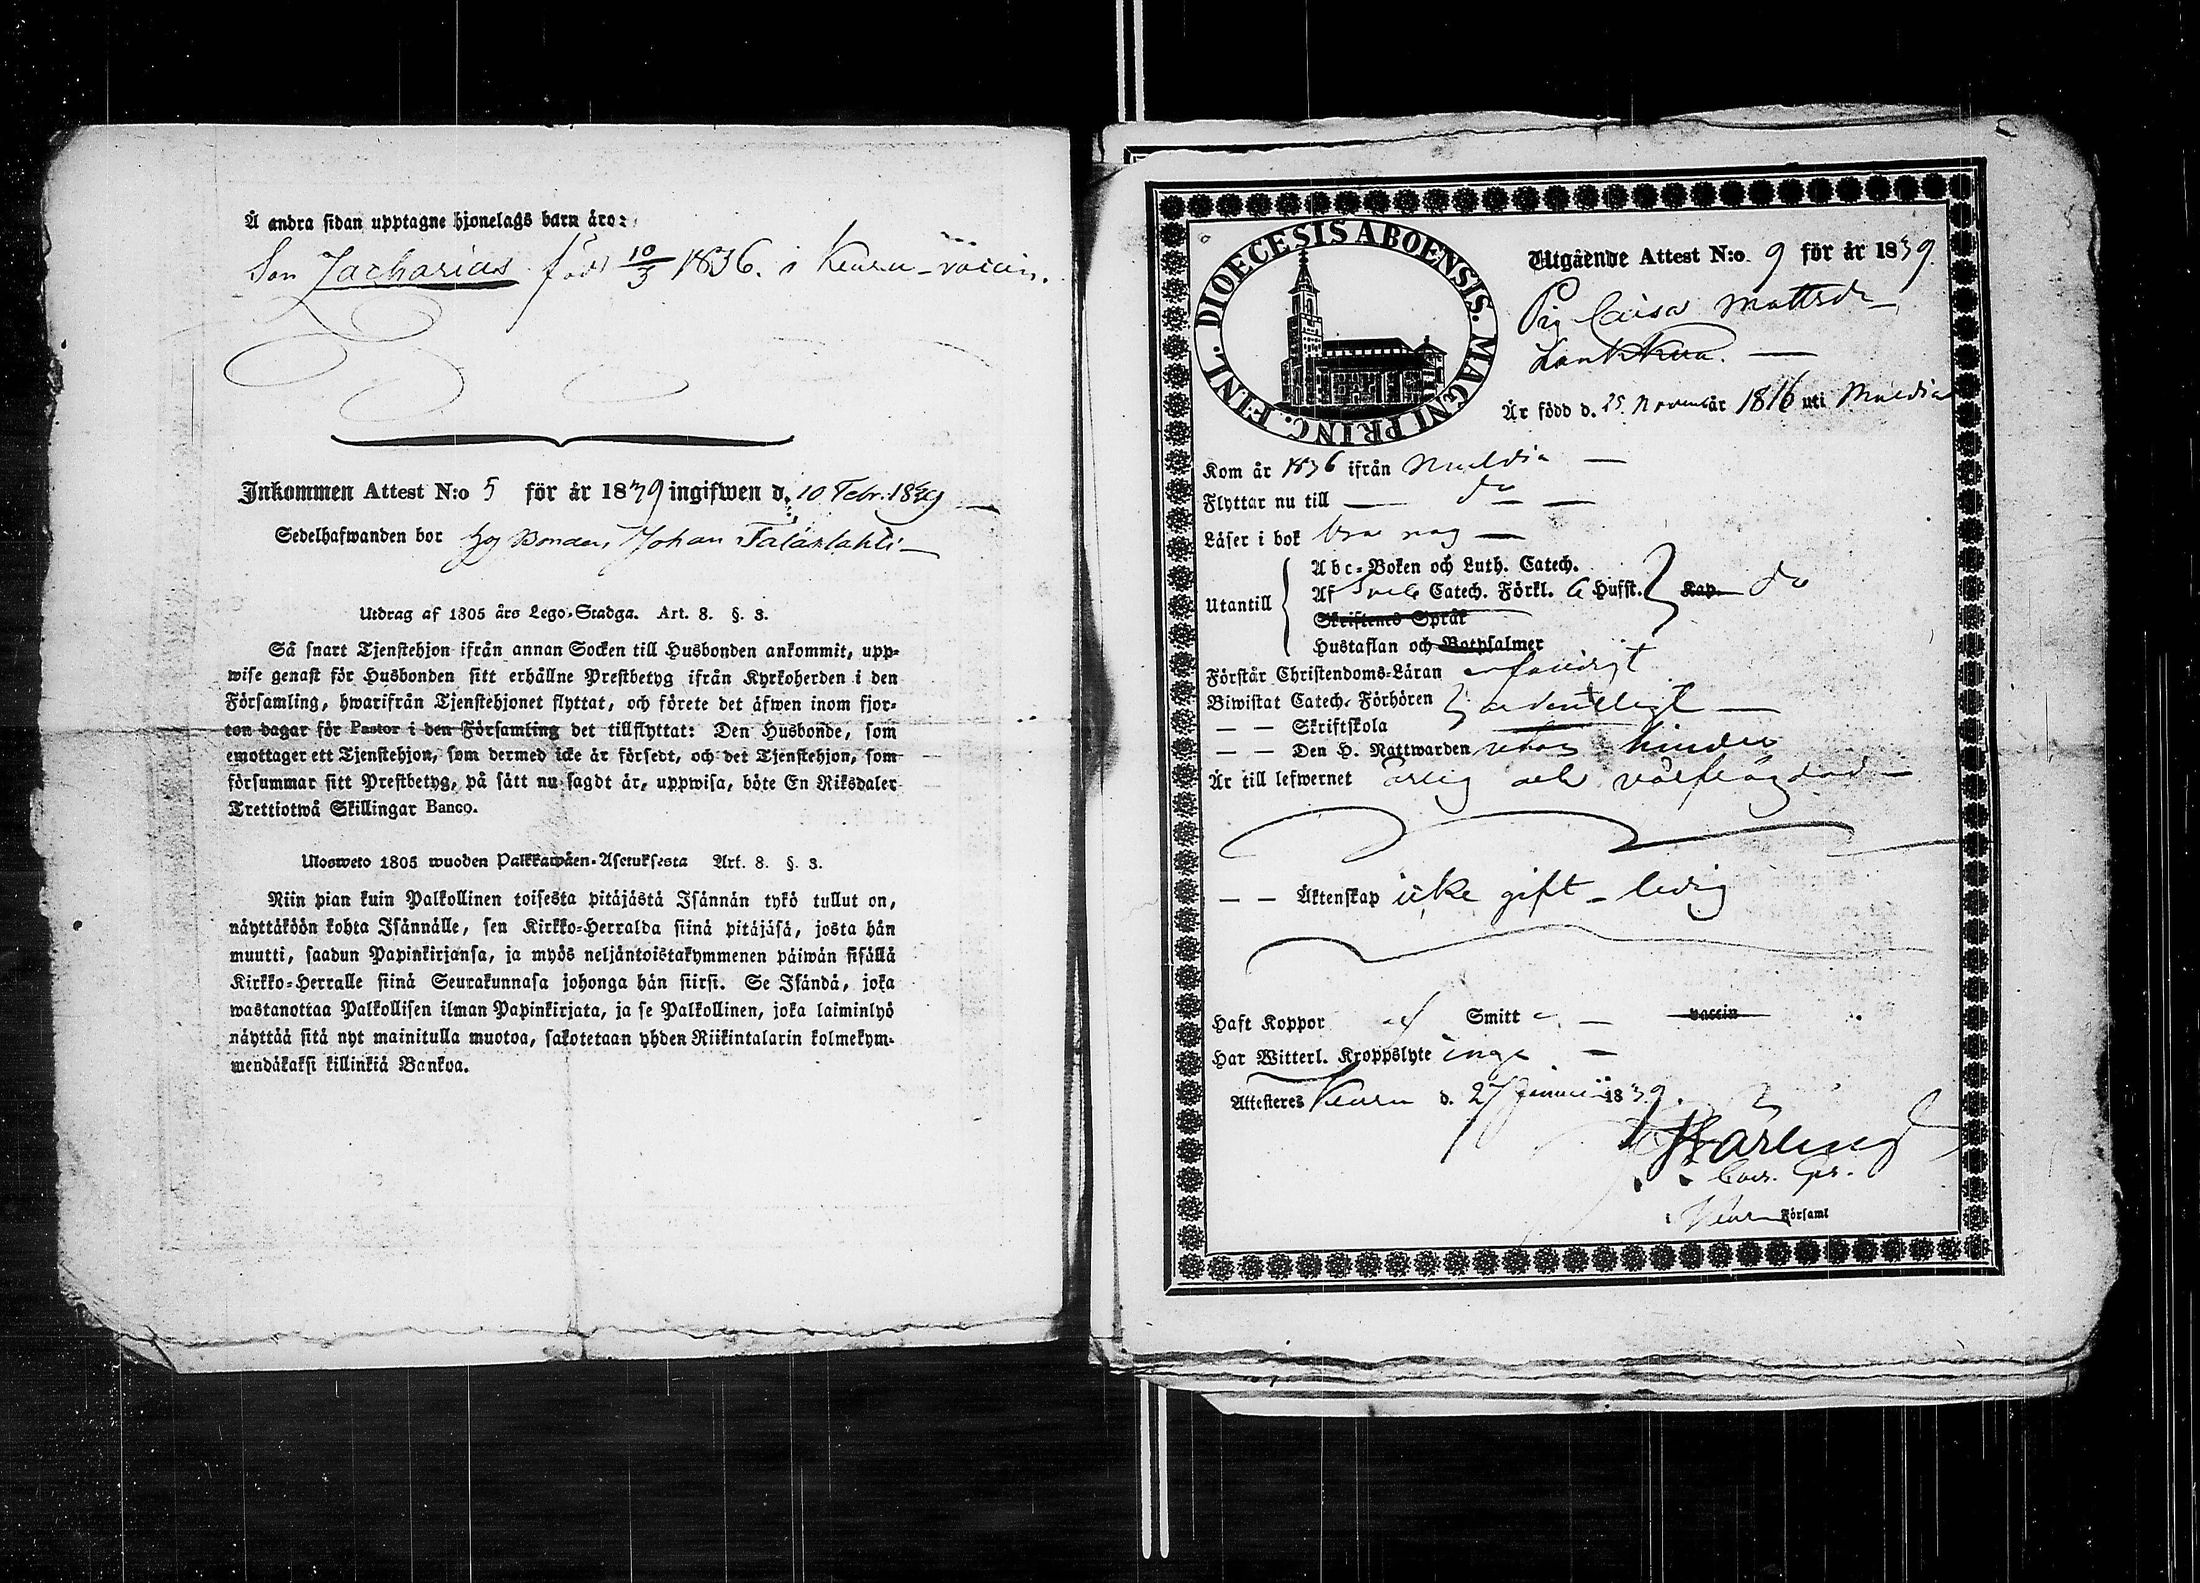 Å andra sidan upptagne hjonelags barn äro:
Son Zacharias född 10/3 1836. i Keuru - vaccin.
Inkommen Attest N:o 5 för år 1839 ingifwen d. 10 Febr. 1839
Sedelhafwanden bor hos Bonden Johan
Utdrag af 1805 års Lego-Stadga. Art. 8. §. 3.
Så snart Tjenstehjon ifrån annan Socken till Husbonden ankommit, upp-
wise genast för Husbonden sitt erhållne Prestbetyg ifrån Kyrkoherden i den
Församling, hwarifrån Tjenstehjonet flyttat, och förete det äfwen inom fjor-
ton dagar för Pastor i den Församling det tillflyttat: Den Husbonde, som
emottager ett Tjenstehjon, som dermed icke är försedt, och det Tjenstehjon, som
försummar sitt Prestbetyg, på sätt nu sagdt är, uppwisa, böte En Riksdaler
Trettiotwå Skillingar Banco.
Ulosweto 1805 wuoden Palkkawäen-Asetuksesta Art. 8. §. 3.
Niin pian kuin Palkollinen toisesta pitäjästä Isännän tykö tullut on,
näyttäköön kohta Isännälle, sen Kirkko-Herralda siinä pitäjäsä, josta hän
muutti, saadun Papinkirjansa, ja myös neljäntoistakymmenen päiwän sisällä
Kirkko-Herralle siinä Seurakunnasa johonga hän siirsi. Se Isändä, joka
wastanottaa Palkollisen ilman Papinkirjata, ja se Palkollinen, joka laiminlyö
näyttää sitä nyt mainitulla muotoa, sakotetaan yhden Riikintalarin kolmekym-
mendäkaksi killinkiä Bankoa.
DIOECESIS ABOENSIS. MAGNI PRINC. FINL.
Utgående Attest N:o 9 för år 1839.
Pig Caisa Mattsdr
Är född d. 25 November år 1816 uti Muldia
Kom år 1836 ifrån Muldia
Flyttar nu till do
Läser i bok bra nog
Utantill
Abc-Boken och Luth. Catech.
Af Sveb. Catech. Förkl. 6 Hufst. Kap. do
Skriftenes Språk
Hustaflan och Botpsalmer
Förstår Christendoms-Läran
Biwistat Catech. Förhören ordentligt
— — Skriftskola
— — Den H. Nattwarden utan hinder
Är till lefwernet ärlig och välfrägdad
— — Äktenskap icke gift - ledig
Haft Koppor Smitt vaccin
Har Witterl. Kroppslyte inga
Attesteres Keuru d. 27 1839.
i Keuru Församl